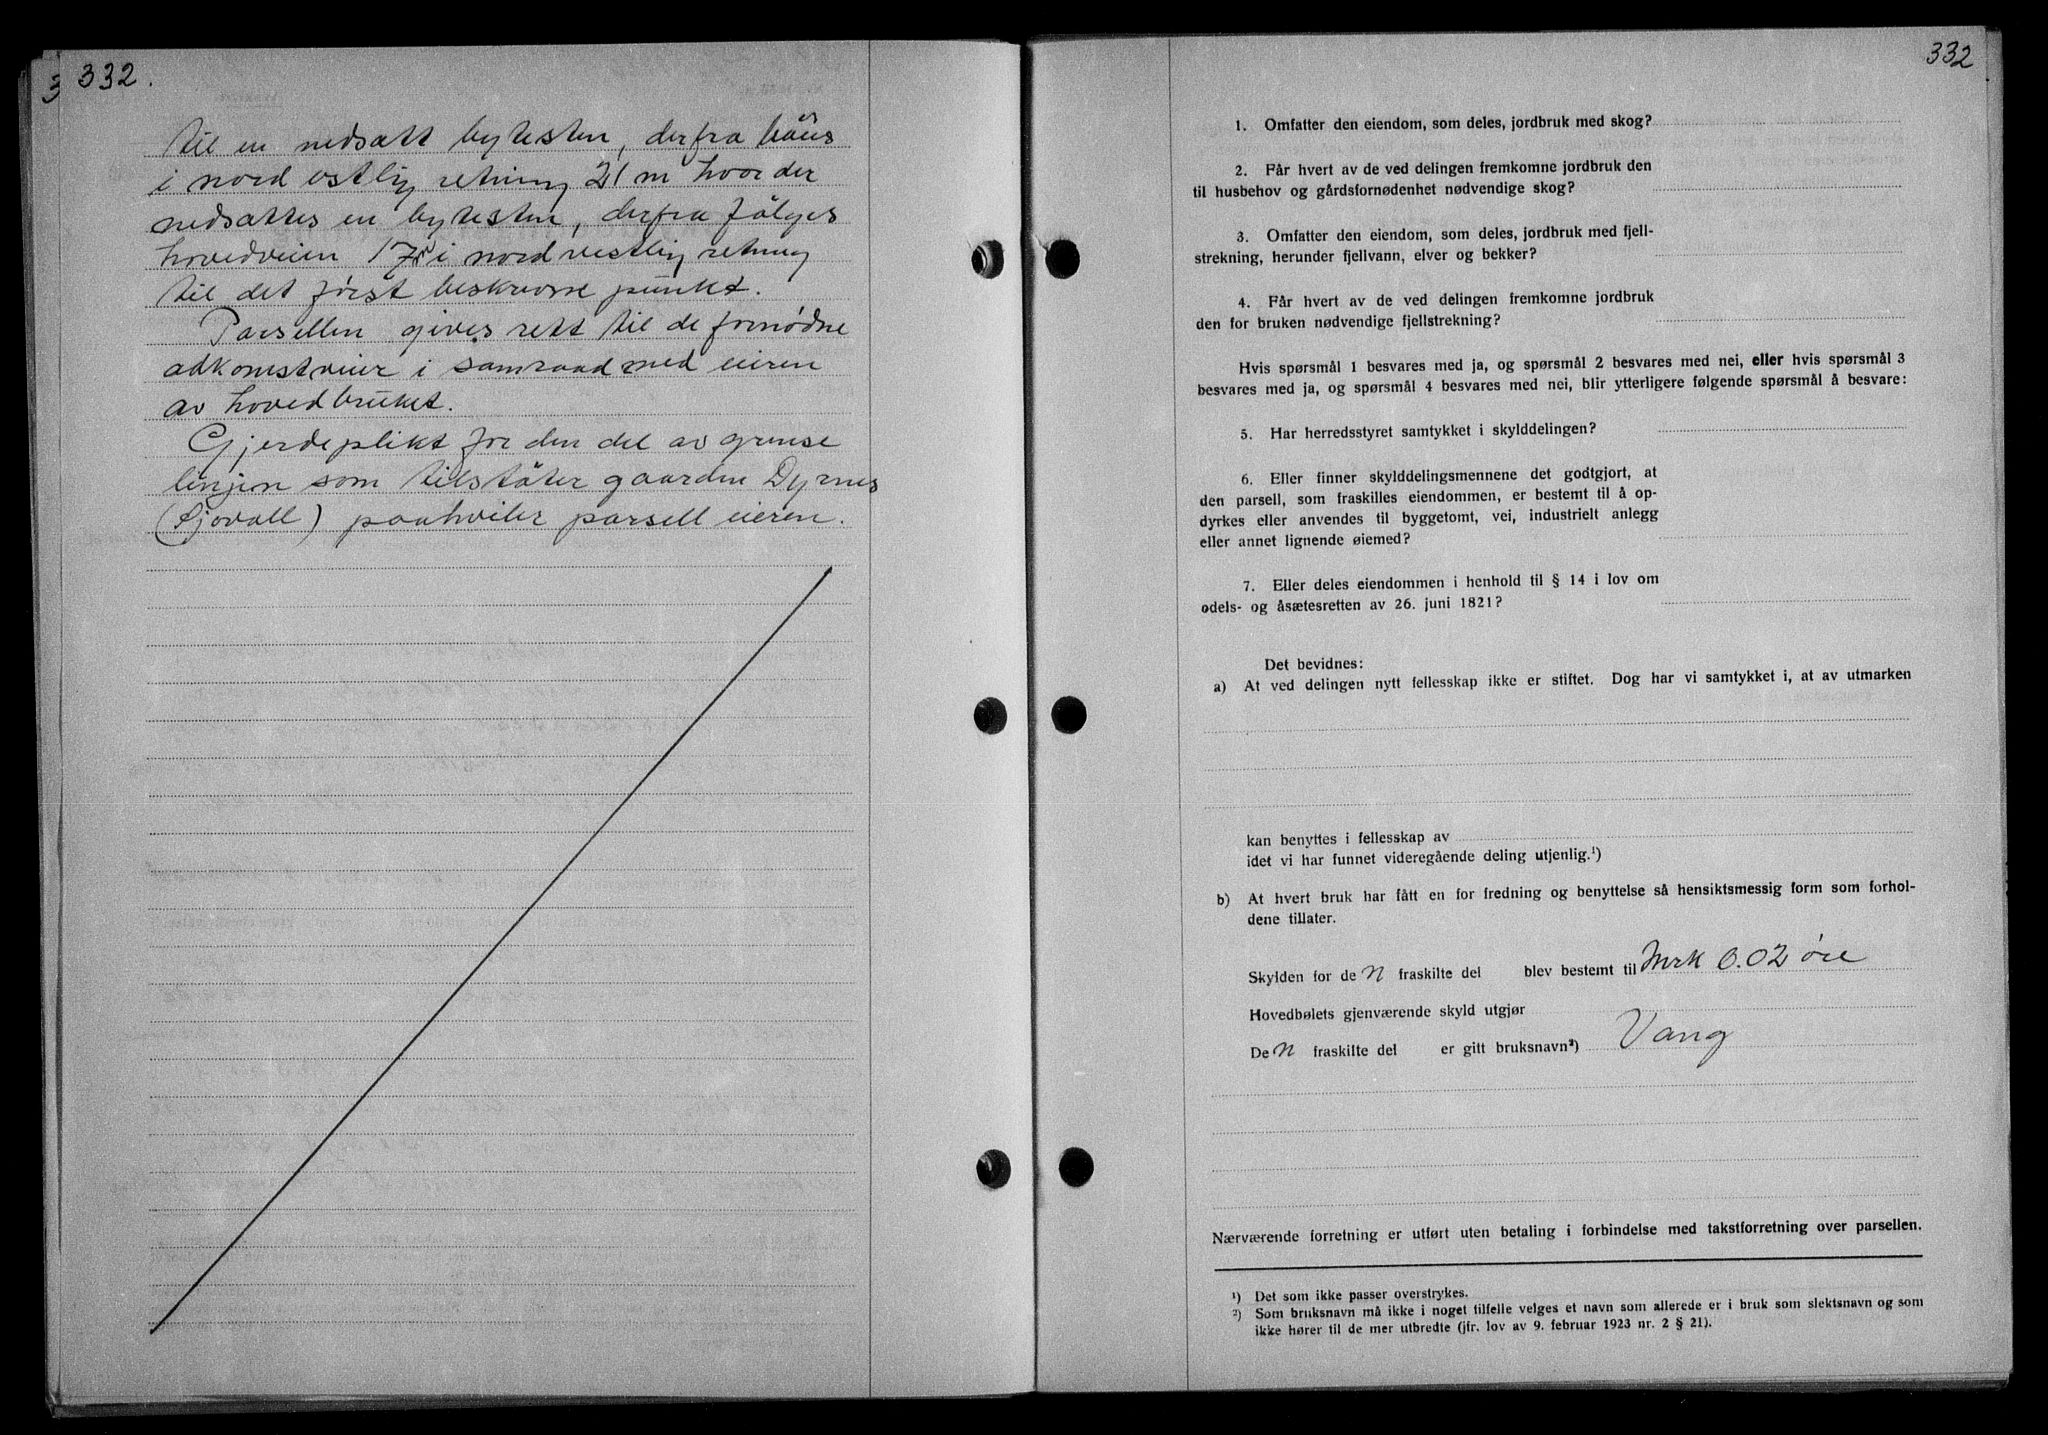 332.
til en nedsatt bytesten, derfra
i nord østlig retning 21 m hvor der
nedsattes en bytesten, derfra fölges
hovedveien 17 m i nord vestlig retning
til det först beskrevne punkt.
Parsellen gives rett til de fornødne
adkomstveier i samraad med eieren
av hovedbruket.
Gjerdeplikt for den del av grense
linjen som tilstöter gaarden Dyrnes
(Sjøvoll) paahviler parsell eieren.
332
1. Omfatter den eiendom, som deles, jordbruk med skog?
2. Får hvert av de ved delingen fremkomne jordbruk den
til husbehov og gårdsfornødenhet nødvendige skog?
3. Omfatter den eiendom, som deles, jordbruk med fjell-
strekning, herunder fjellvann, elver og bekker?
4. Får hvert av de ved delingen fremkomne jordbruk
den for bruken nødvendige fjellstrekning?
Hvis spørsmål 1 besvares med ja, og spørsmål 2 besvares med nei, eller hvis spørsmål 3
besvares med ja, og spørsmål 4 besvares med nei, blir ytterligere følgende spørsmål å besvare:
5. Har herredsstyret samtykket i skylddelingen?
6. Eller finner skylddelingsmennene det godtgjort, at
den parsell, som fraskilles eiendommen, er bestemt til å op-
dyrkes eller anvendes til byggetomt, vei, industrielt anlegg
eller annet lignende øiemed?
7. Eller deles eiendommen i henhold til § 14 i lov om
odels- og åsætesretten av 26. juni 1821?
Det bevidnes:
a) At ved delingen nytt fellesskap ikke er stiftet. Dog har vi samtykket i, at av utmarken
kan benyttes i fellesskap av
idet vi har funnet videregående deling utjenlig.¹)
b) At hvert bruk har fått en for fredning og benyttelse så hensiktsmessig form som forhol-
dene tillater.
Skylden for de n fraskilte del blev bestemt til Mrk 0.02 öre
Hovedbølets gjenværende skyld utgjør
De n fraskilte del er gitt bruksnavn²) Vang
Nærværende forretning er utført uten betaling i forbindelse med takstforretning over parsellen.
¹) Det som ikke passer overstrykes.
²) Som bruksnavn må ikke i noget tilfelle velges et navn som allerede er i bruk som slektsnavn og som
ikke hører til de mer utbredte (jfr. lov av 9. februar 1923 nr. 2 § 21).